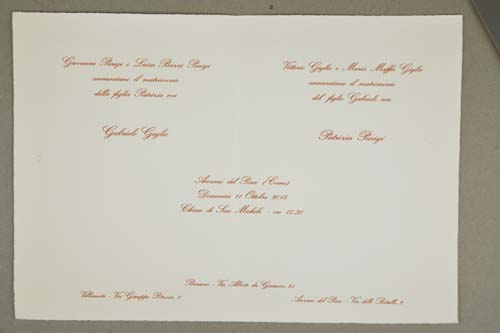 Giovanni Parigi e Luisa Bazzi Parigi
annunciano il matrimonio
della figlia Patrizia con
Gabriele Giglio
Vittorio Giglio e Maria Maffei Giglio
annunciano il matrimonio
del figlio Gabriele con
Patrizia Parigi
del Parco (Como)
Domenica 11 Ottobre 2015
Chiesa di San Michele - ore 17.30
Via Alberto da Giussano,
Via Giuseppe
del Parco - Via delle